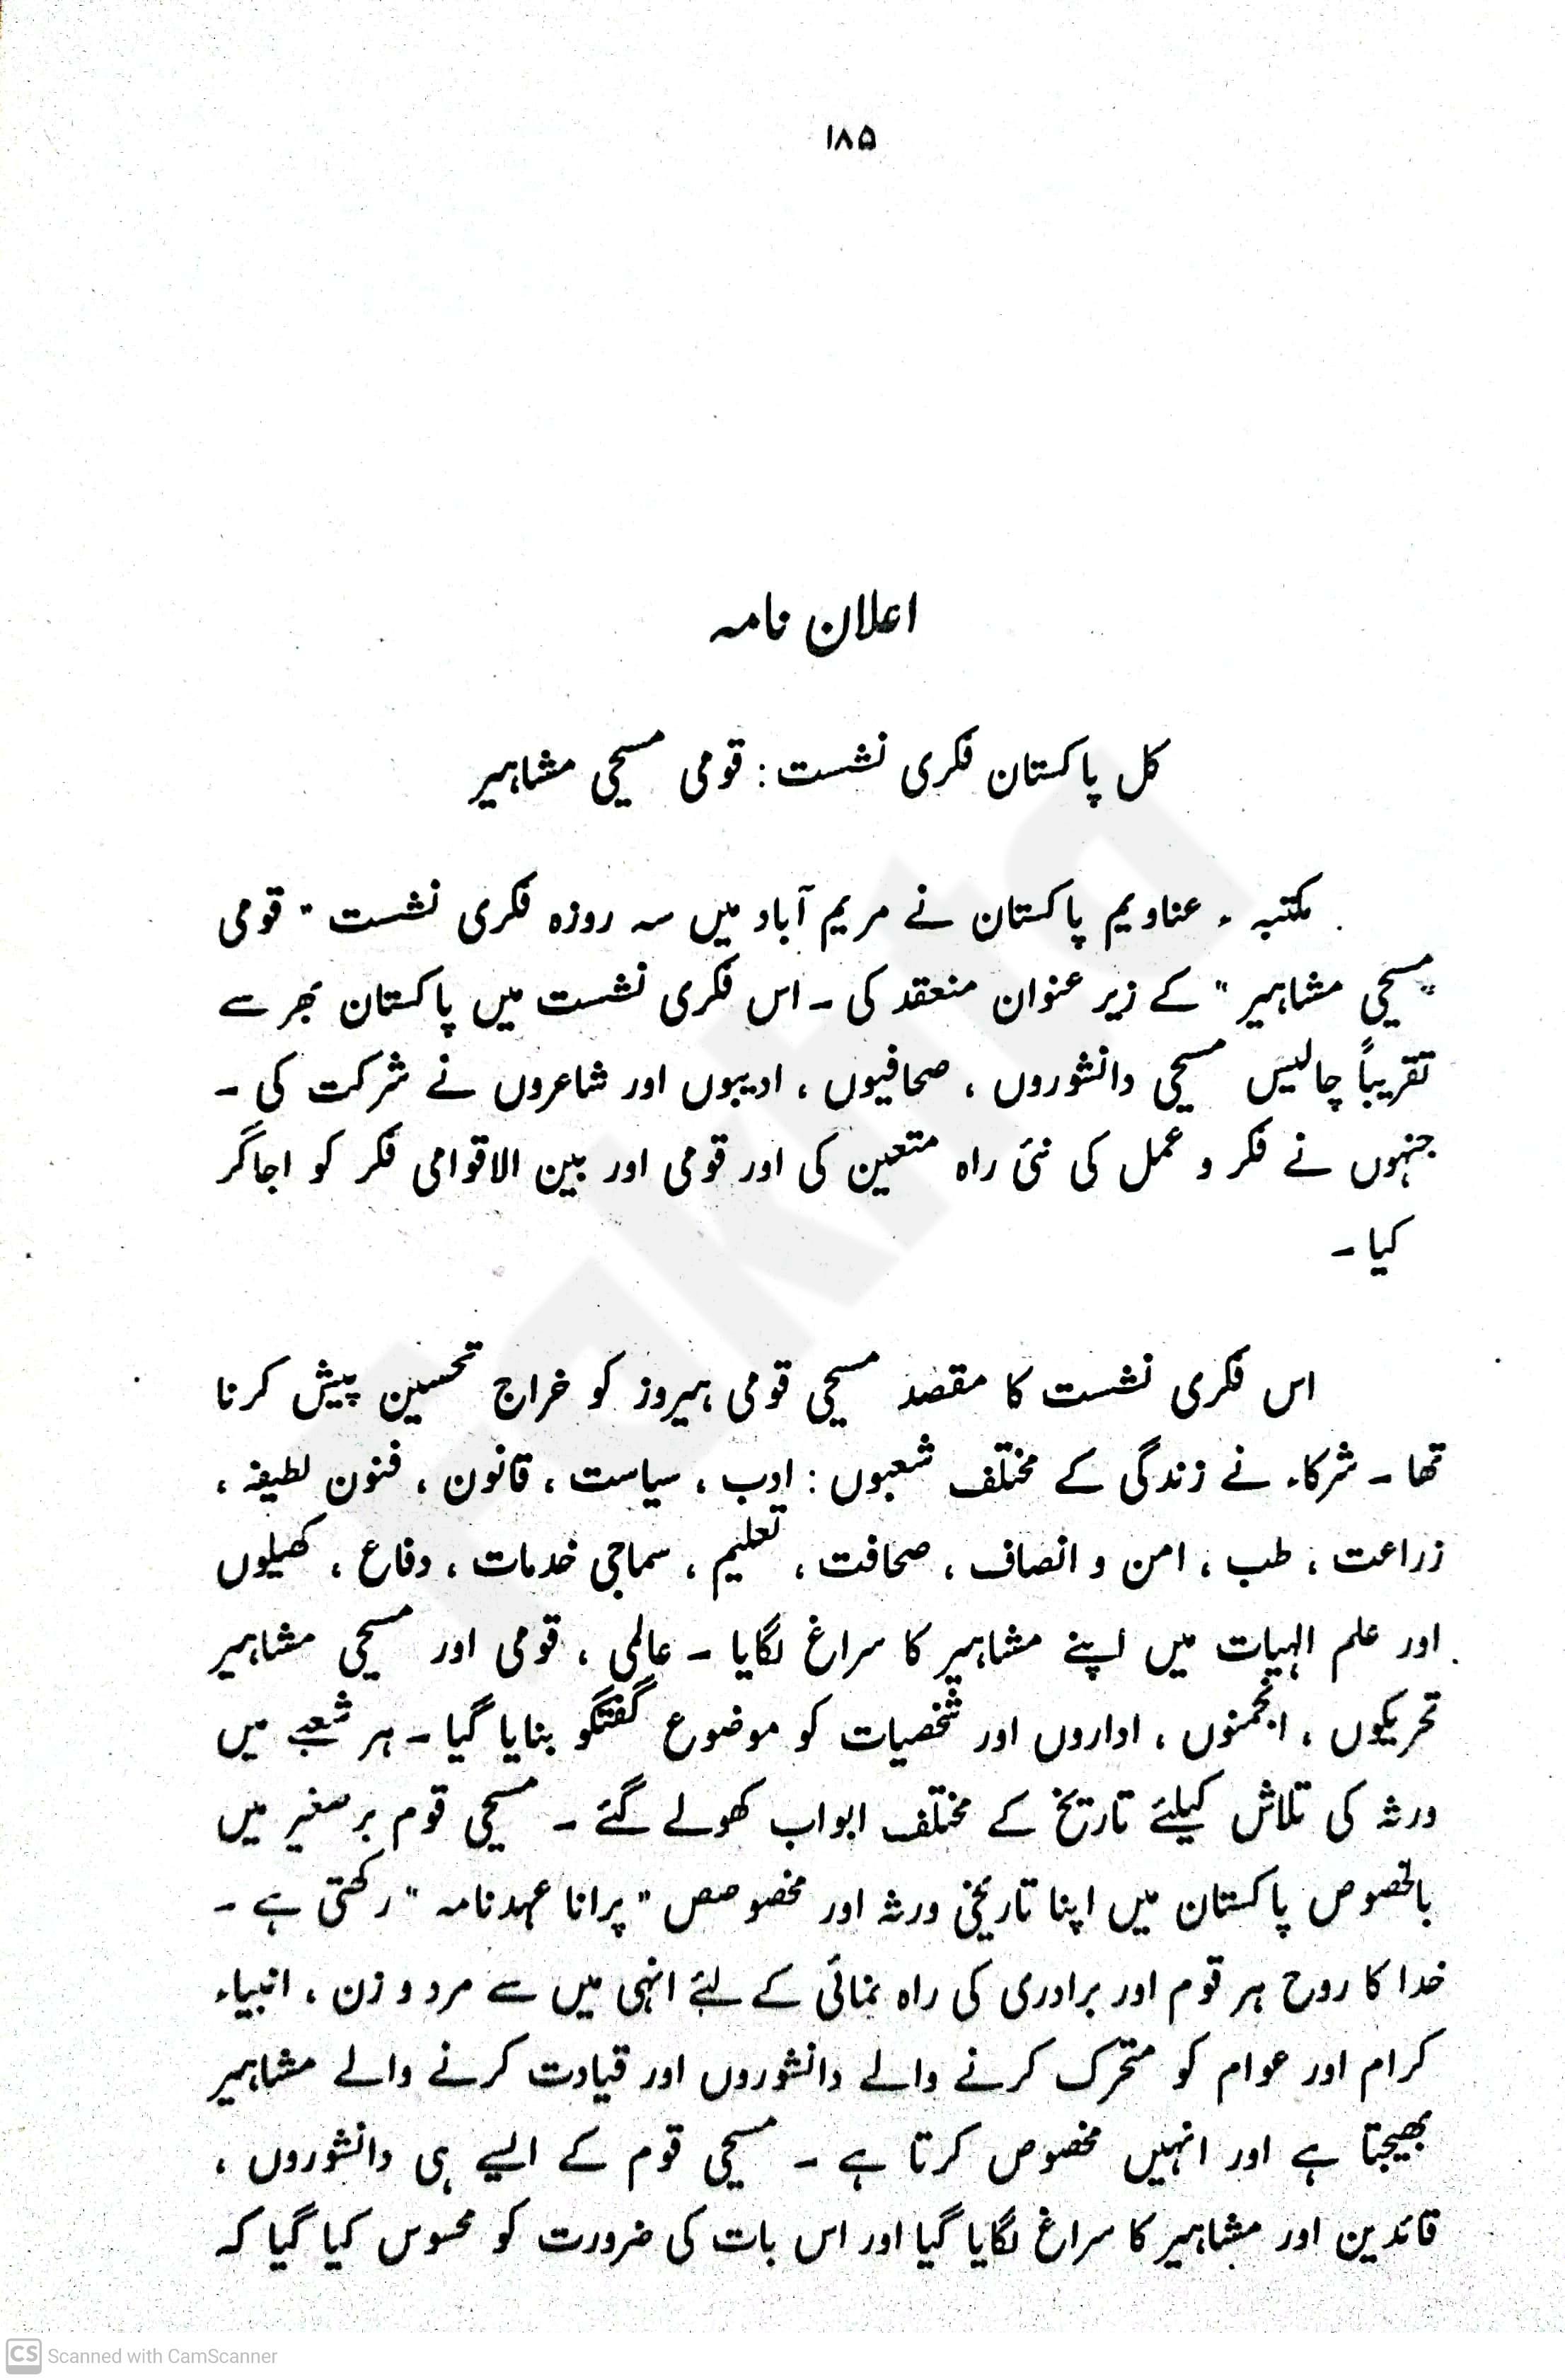 ۱۸۵
اعلان نامہ
کل پاکستان فکری نشست : قومی مسیحی مشاہیر
مکتبہ ء عناویم پاکستان نے مریم آباد میں سہ روزہ فکری نشست " قومی
"مسیحی مشاہیر " کے زیر عنوان منعقد کی ۔ اس فکری نشست میں پاکستان بھر سے
تقریباً چالیس مسیحی دانشوروں ، صحافیوں ، ادیبوں اور شاعروں نے شرکت کی ۔
جنہوں نے فکر و عمل کی نئی راہ متعین کی اور قومی اور بین الاقوامی فکر کو اجاگر
کیا ۔
اس فکری نشست کا مقصد مسیحی قومی ہیروز کو خراج تحسین پیش کرنا
تھا ۔ شرکاء نے زندگی کے مختلف شعبوں : ادب ، سیاست ، قانون ، فنون لطیفہ ،
زراعت ، طب ، امن و انصاف ، صحافت ، تعلیم ، سماجی خدمات ، دفاع ، کھیلوں
اور علم الہیات میں اپنے مشاہیر کا سراغ لگایا ۔ عالمی ، قومی اور مسیحی مشاہیر
تحریکوں ، انجمنوں ، اداروں اور شخصیات کو موضوع گفتگو بنایا گیا ۔ ہر شعبے میں
ورثہ کی تلاش کیلئے تاریخ کے مختلف ابواب کھولے گئے ۔ مسیحی قوم برصغیر میں
بالخصوص پاکستان میں اپنا تاریخی ورثہ اور مخصوص "پرانا عہدنامہ " رکھتی ہے ۔
خدا کا روح ہر قوم اور برادری کی راہ نمائی کے لئے انہی میں سے مرد و زن ، انبیاء
کرام اور عوام کو متحرک کرنے والے دانشوروں اور قیادت کرنے والے مشاہیر
بھیجتا ہے اور انہیں مخصوص کرتا ہے ۔ مسیحی قوم کے ایسے ہی دانشوروں ،
قائدین اور مشاہیر کا سراغ لگایا گیا اور اس بات کی ضرورت کو محسوس کیا گیا کہ
CS Scanned with CamScanner